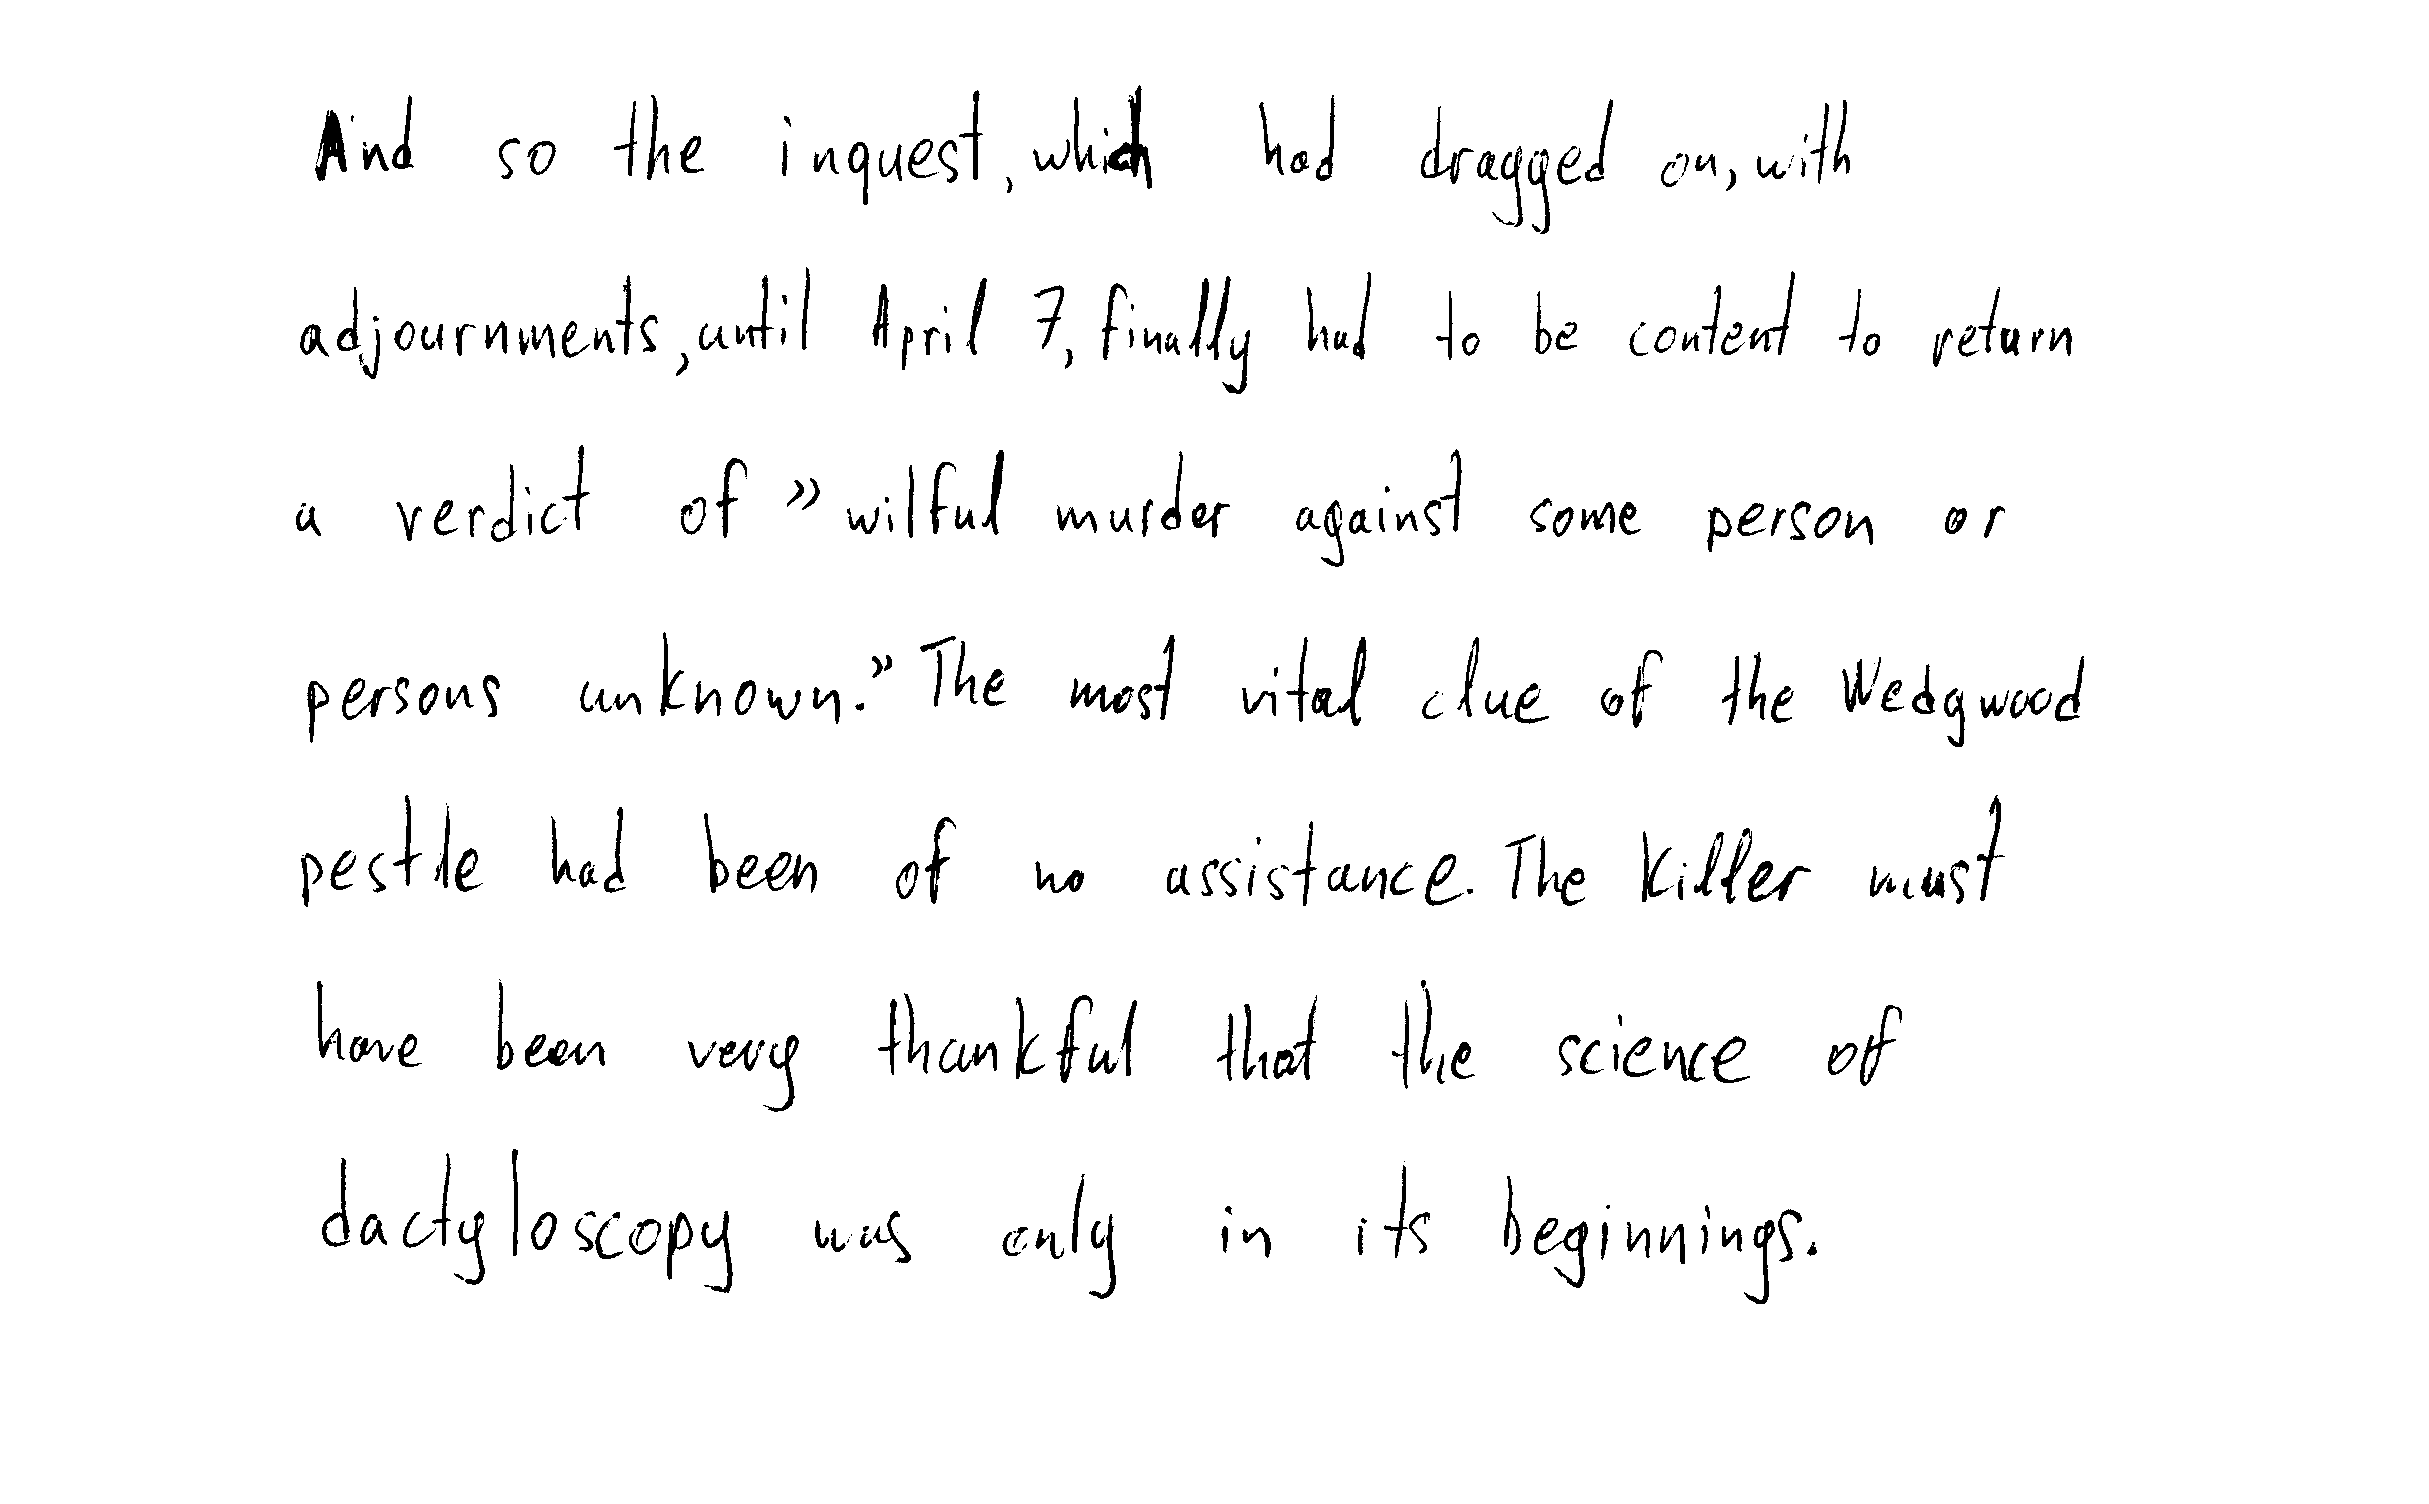 And so the inquest, which had dragged on, with
adjournments, until April 7, finally had to be content to return
a verdict of "wilful murder against some person or
persons unknown." The most vital clue of the Wedgwood
pestle had been of no assistance. The killer must
have been very thankful that the science of
dactyloscopy was only in its beginnings.